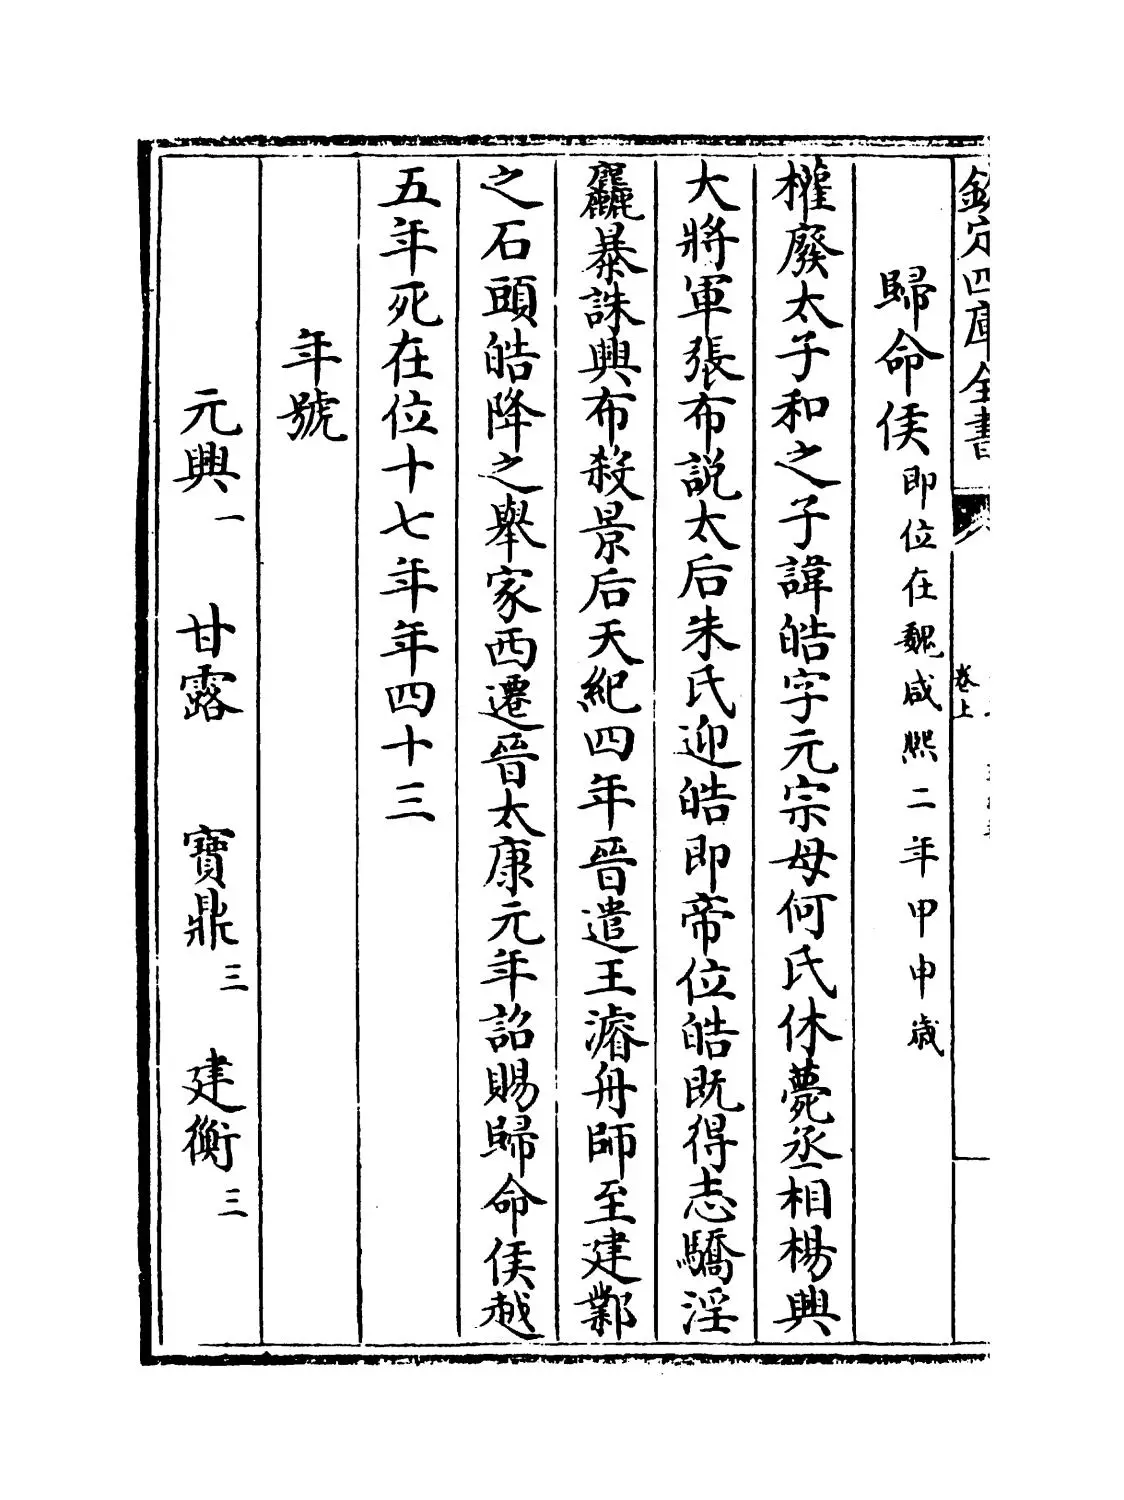 欽定四庫全書
卷上
歸命侯即位在魏咸熙二年甲申歲
權廢太子和之子諱皓字元宗母何氏休薨丞相楊興
大將軍張布説太后朱氏迎皓即帝位皓既得志驕淫
麤暴誅興布殺景后天紀四年晉遣王濬舟師至建鄴
之石頭皓降之舉家西遷晉太康元年詔賜歸命侯越
五年死在位十七年年四十三
年號
元興一 甘露 寶鼎三 建衡三